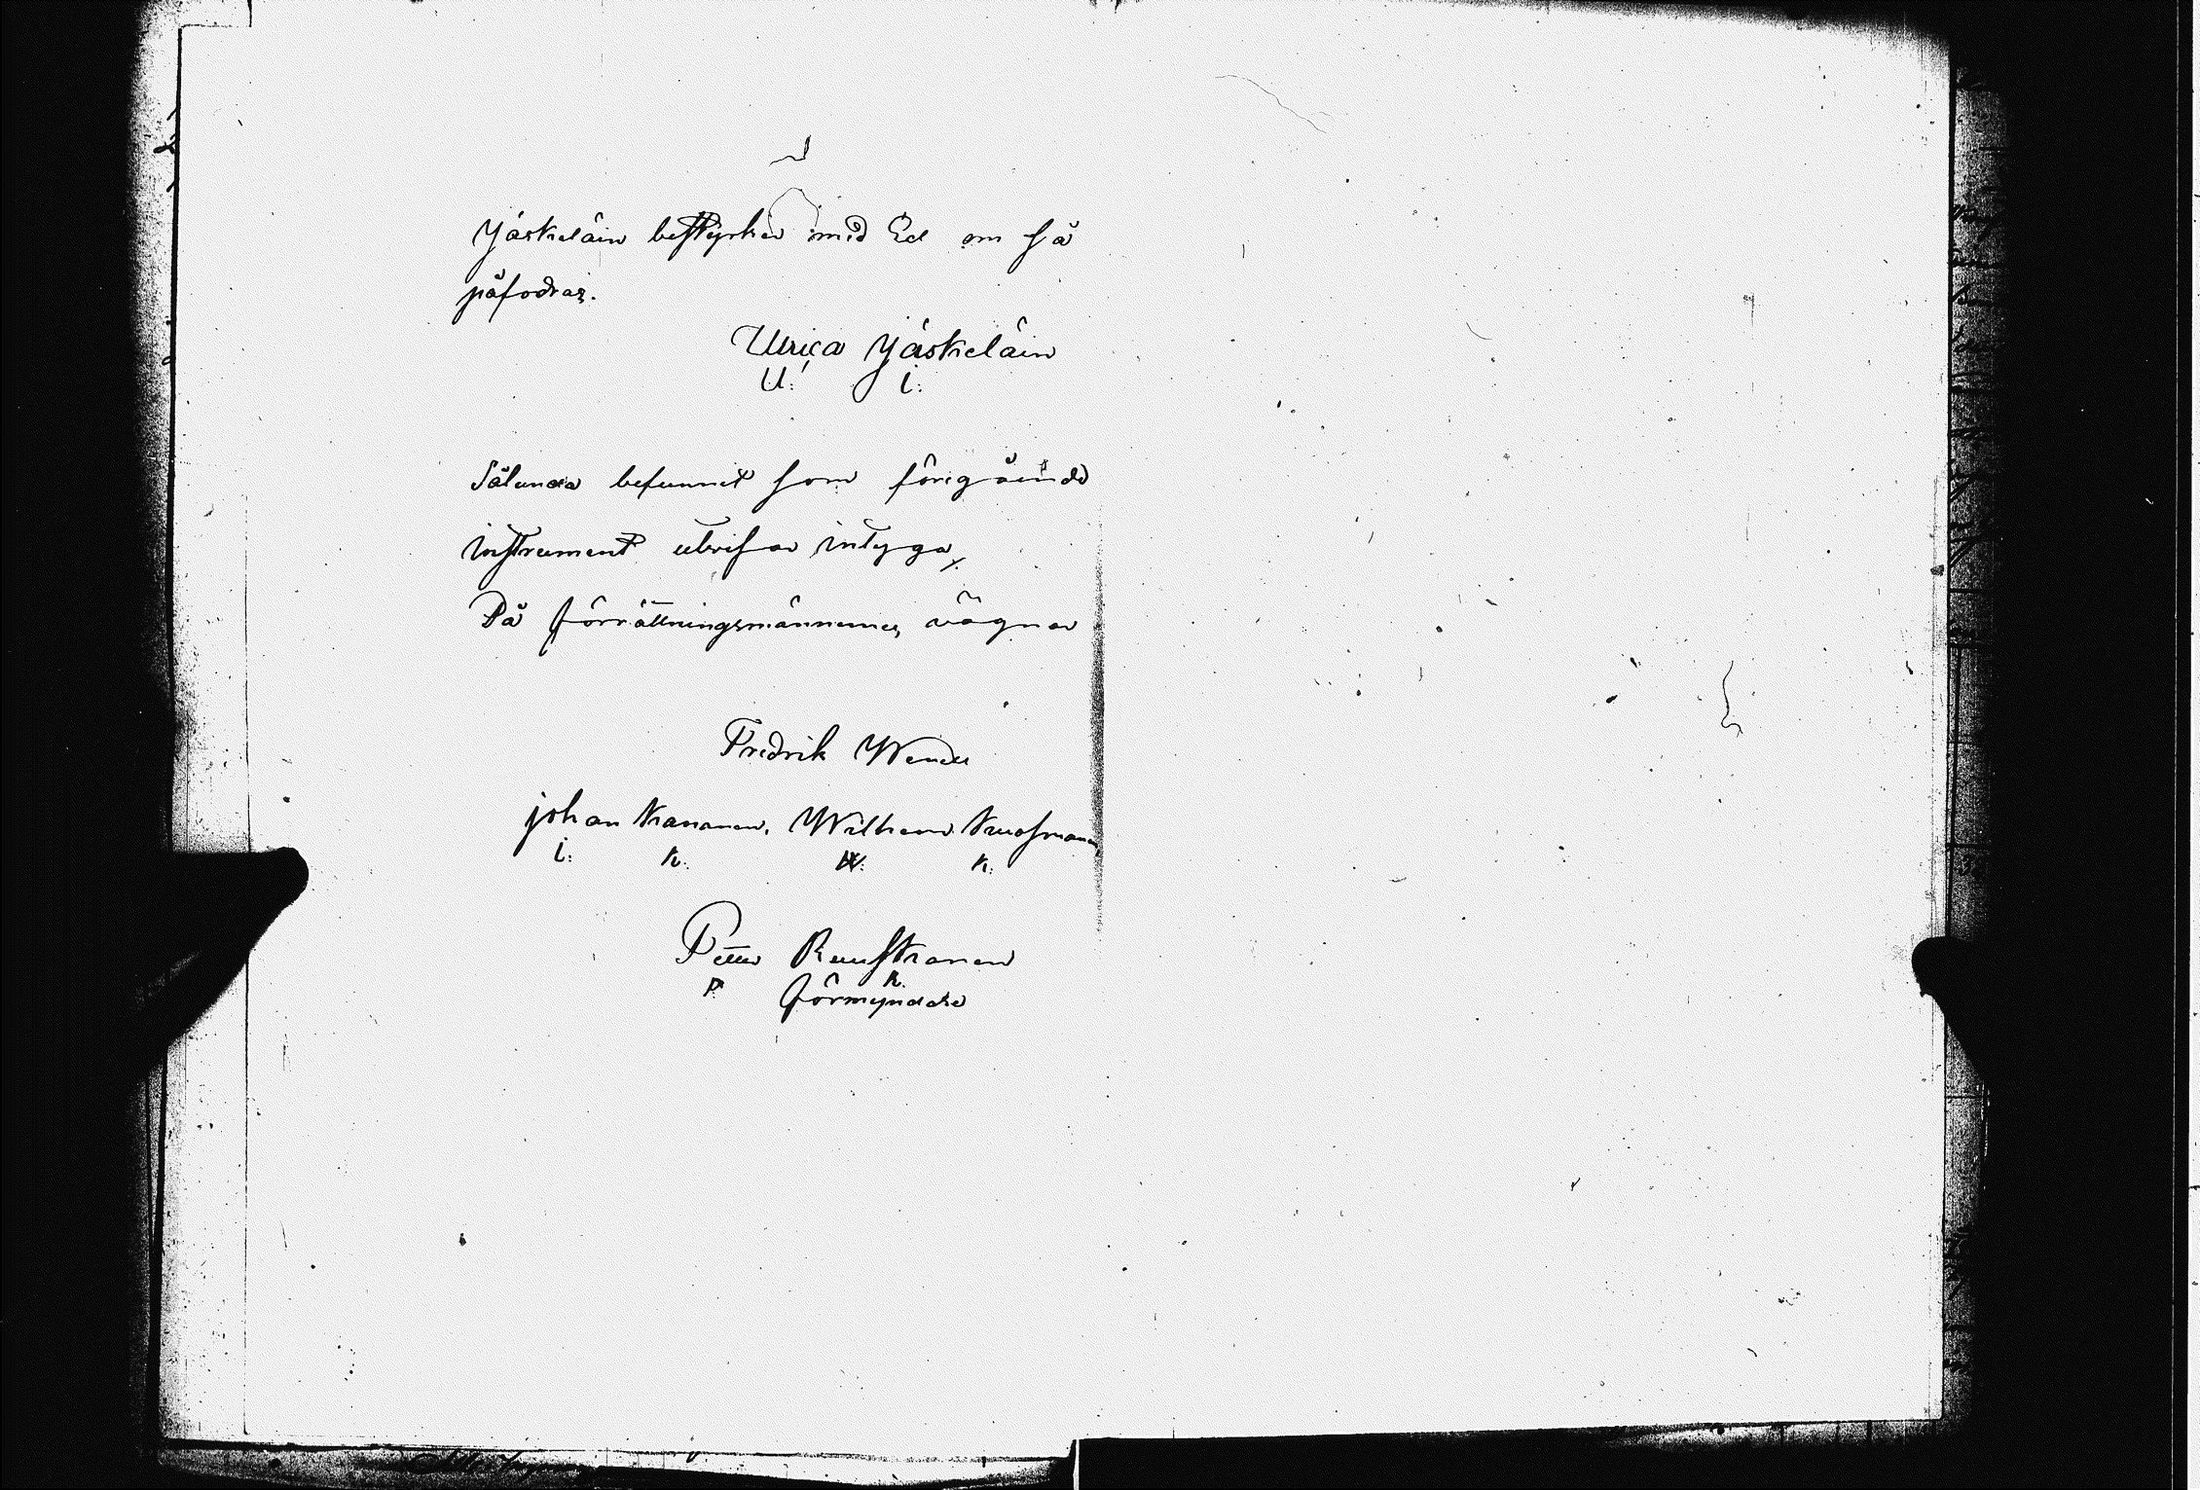 Jäskeläin bestyrker med Ed om så
påfodras.
Ulrica Jäskeläin
U: I:
Sålunda befunnit som föregående
instrument utvisar intyga,
På förrättningsmännernes vägnar
Fredrik Wende
johan Kananen, Wilhem Kuosmanen,
I: K: W: K:
Petter Ruuskanen
P: R:
förmyndare